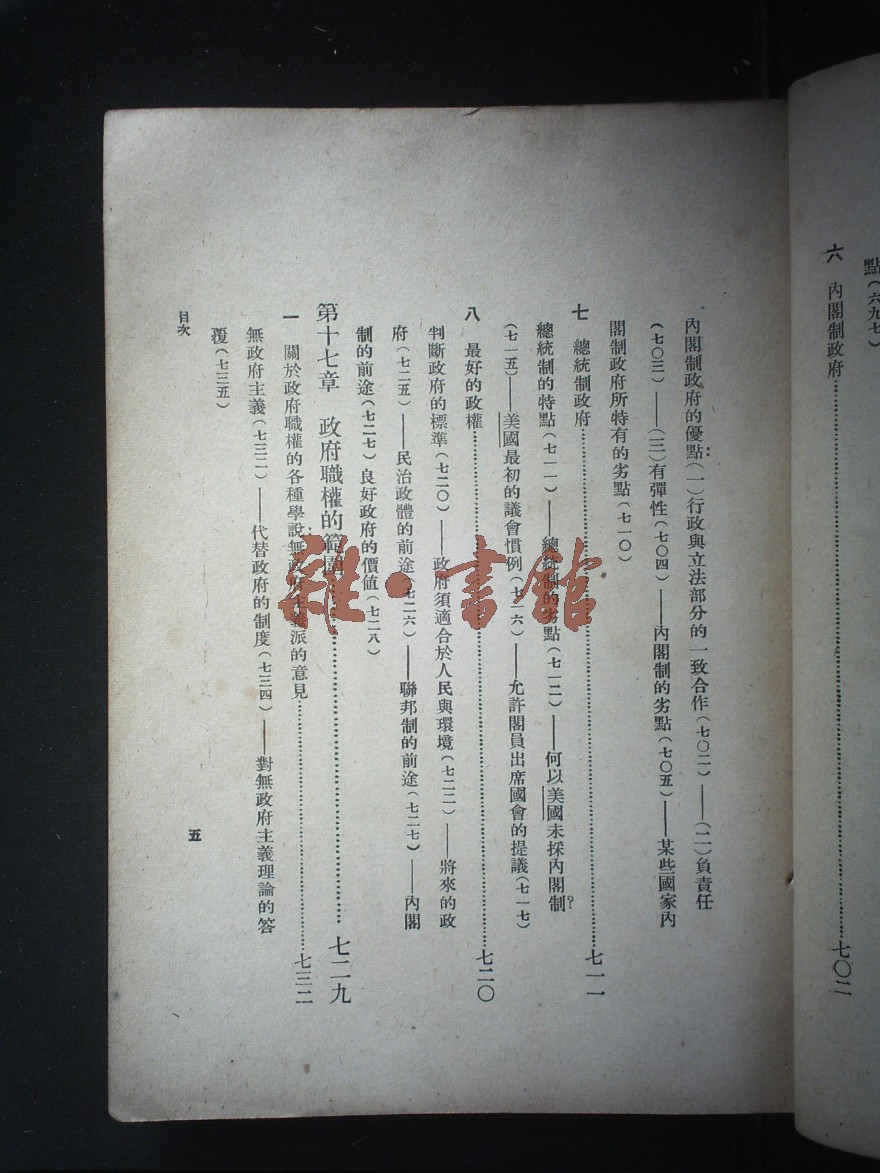 點(六九七)
六 內閣制政府……七〇二
內閣制政府的優點(一)行政與立法部分的一致合作(七〇二)——(二)負責任
(七〇三)——(三)有彈性(七〇四)——內閣制的劣點(七〇五)——某些國家內
閣制政府所特有的劣點(七一〇)
七 總統制政府……七一一
總統制的特點(七一一)——總統制的劣點(七一二)——何以美國未採內閣制?
(七一五)——美國最初的議會慣例(七一六)——允許閣員出席國會的提議(七一七)
八 最好的政權……七二〇
判斷政府的標準(七二〇)——政府須適合於人民與環境(七二二)——將來的政
府(七二五)——民治政體的前途(七二六)——聯邦制的前途(七二七)——內閣
制的前途(七二七)良好政府的價值(七二八)
第十七章 政府職權的範圍……七二九
一 關於政府職權的各種學說無政府主義派的意見……七三二
無政府主義(七三二)——代替政府的制度(七三四)——對無政府主義理論的答
覆(七三五)
目次
五
雜·書館